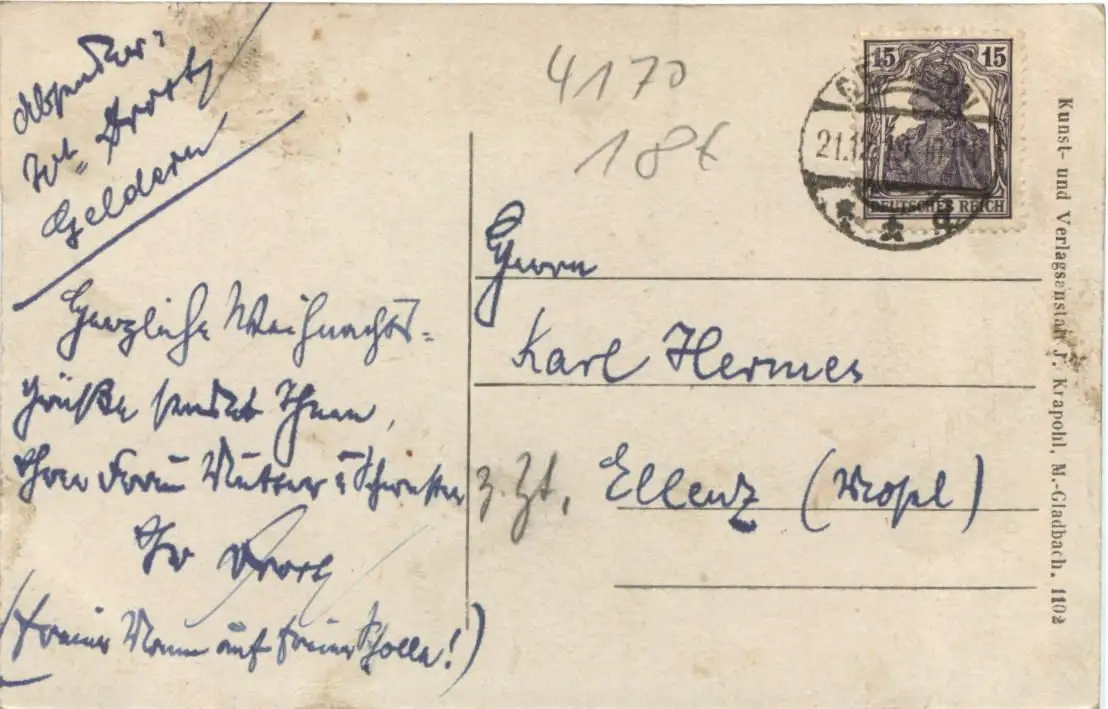 Absender:
Geldern
Herzliche Weihnachts-
grüße sendet Ihnen,
Ihrer Frau Mutter u Schwester
Ihr
(Freier Mann auf freier Scholle!)
4170
18€
15 15
21.12.19
DEUTSCHES REICH
Herrn
Karl Hermes
z. Zt. Ellenz (Mosel)
Kunst- und Verlagsanstalt J. Krapohl, M.-Gladbach. 1102